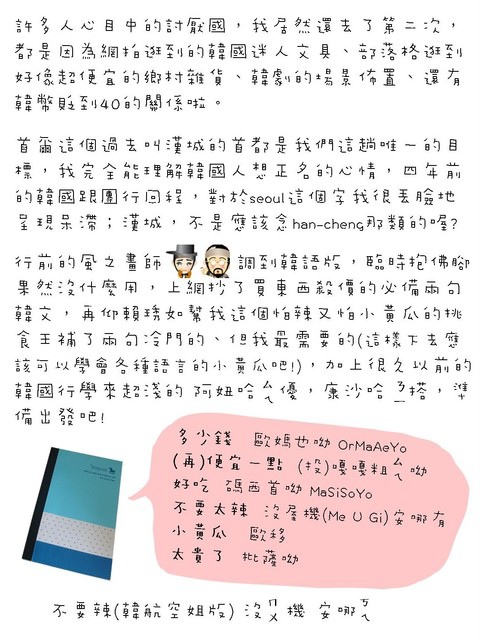 許多人心目中的討厭國，我居然還去了第二次，
都是因為網拍逛到的韓國迷人文具、部落格逛到
好像超便宜的鄉村雜貨、韓劇的場景佈置、還有
韓幣貶到40的關係啦。
首爾這個過去叫漢城的首都是我們這趟唯一的目
標，我完全能理解韓國人想正名的心情，四年前
的韓國跟團行回程，對於seoul這個字我很丟臉地
呈現呆滯；漢城，不是應該念han-cheng那類的喔?
行前的風之畫師 調到韓語版，臨時抱佛腳
果然沒什麼用，上網抄了買東西殺價的必備兩句
韓文，再仰賴琇如幫我這個怕辣又怕小黃瓜的挑
食王補了兩句冷門的、但我最需要的(這樣下去應
該可以學會各種語言的小黃瓜吧!)，加上很久以前的
韓國行學來超淺的 阿妞哈ㄙㄟ優，康沙哈ㄋㄧ搭，準
備出發吧!
多少錢 歐媽也呦 OrMaAeYo
(再)便宜一點 (投)嘎嘎粗ㄙㄟ呦
好吃 碼西首呦 MaSiSoYo
不要太辣 沒屋機(Me U Gi)安哪有
小黃瓜 歐移
太貴了 批薩呦
不要辣(韓航空姐版) 沒ㄇㄨ機 安哪ㄎㄟ